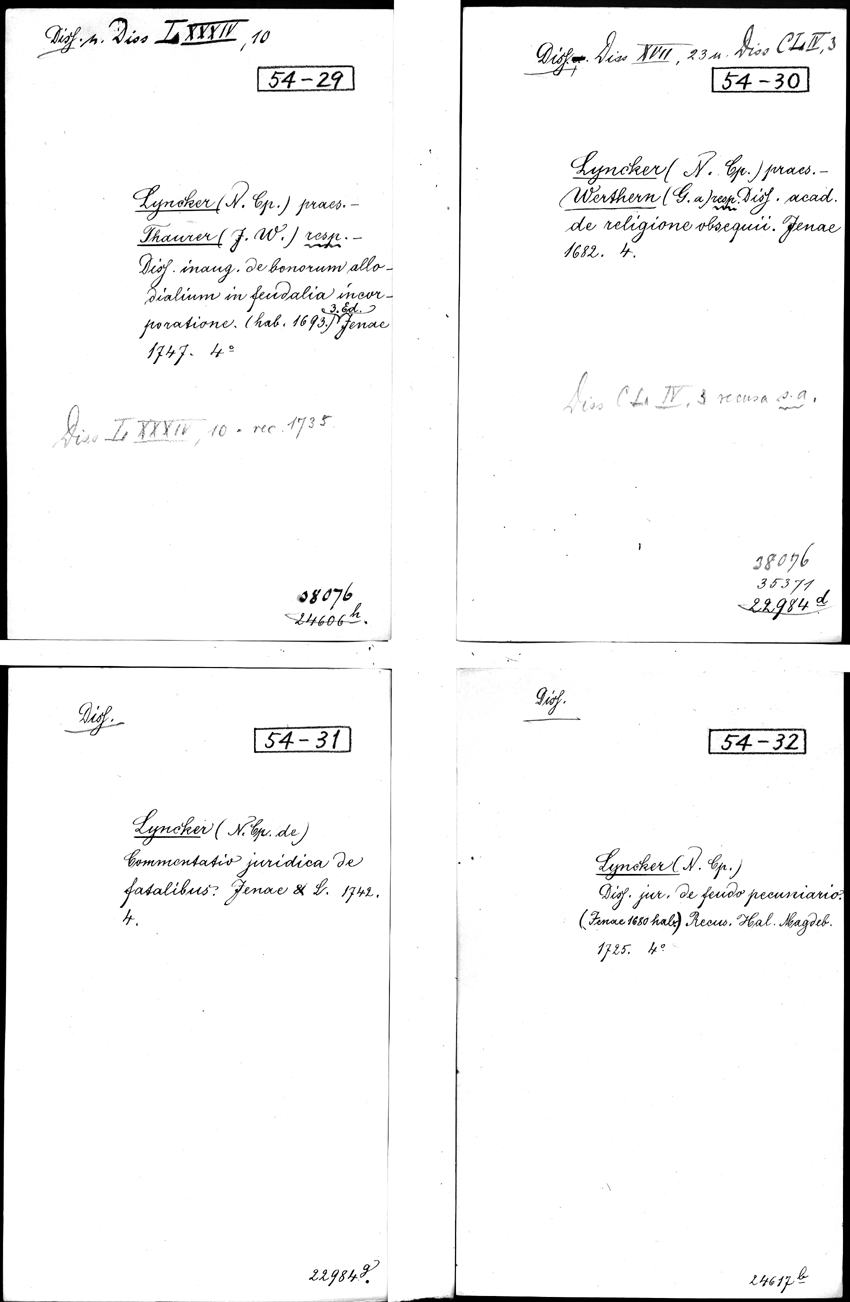 Diss. u. Diss LXXXIV, 10
54-29
Lyncker (N. Cp.) praes.-
Thaurer (J. W.) resp.-
Diss. inaug. de bonorum allo-
dialium in feudalia incor-
3. Ed.
poratione. (hab. 1693.) Jenae
1747. 4°
Diss LXXXIV, 10 . rec. 1735
38076
24606 h.
Diss. Diss XVII, 23 u. Diss CLIV, 3
54-30
Lyncker (N. Cp.) praes.-
Werthern (G. a) resp. Diss. acad.
de religione obsequii. Jenae
1682. 4.
Diss CLIV, 3 recusa s.a.
38076
35371
22984 d
Diss.
54-31
Lyncker (N. Cp. de)
Commentatio juridica de
fatalibus. Jenae & L. 1742.
4.
22984 g.
Diss.
54-32
Lyncker (N. Cp.)
Diss. jur. de feudo pecuniario.
(Jenae 1680 hab.) Recus. Hal. Magdeb.
1725. 4°
24617 b